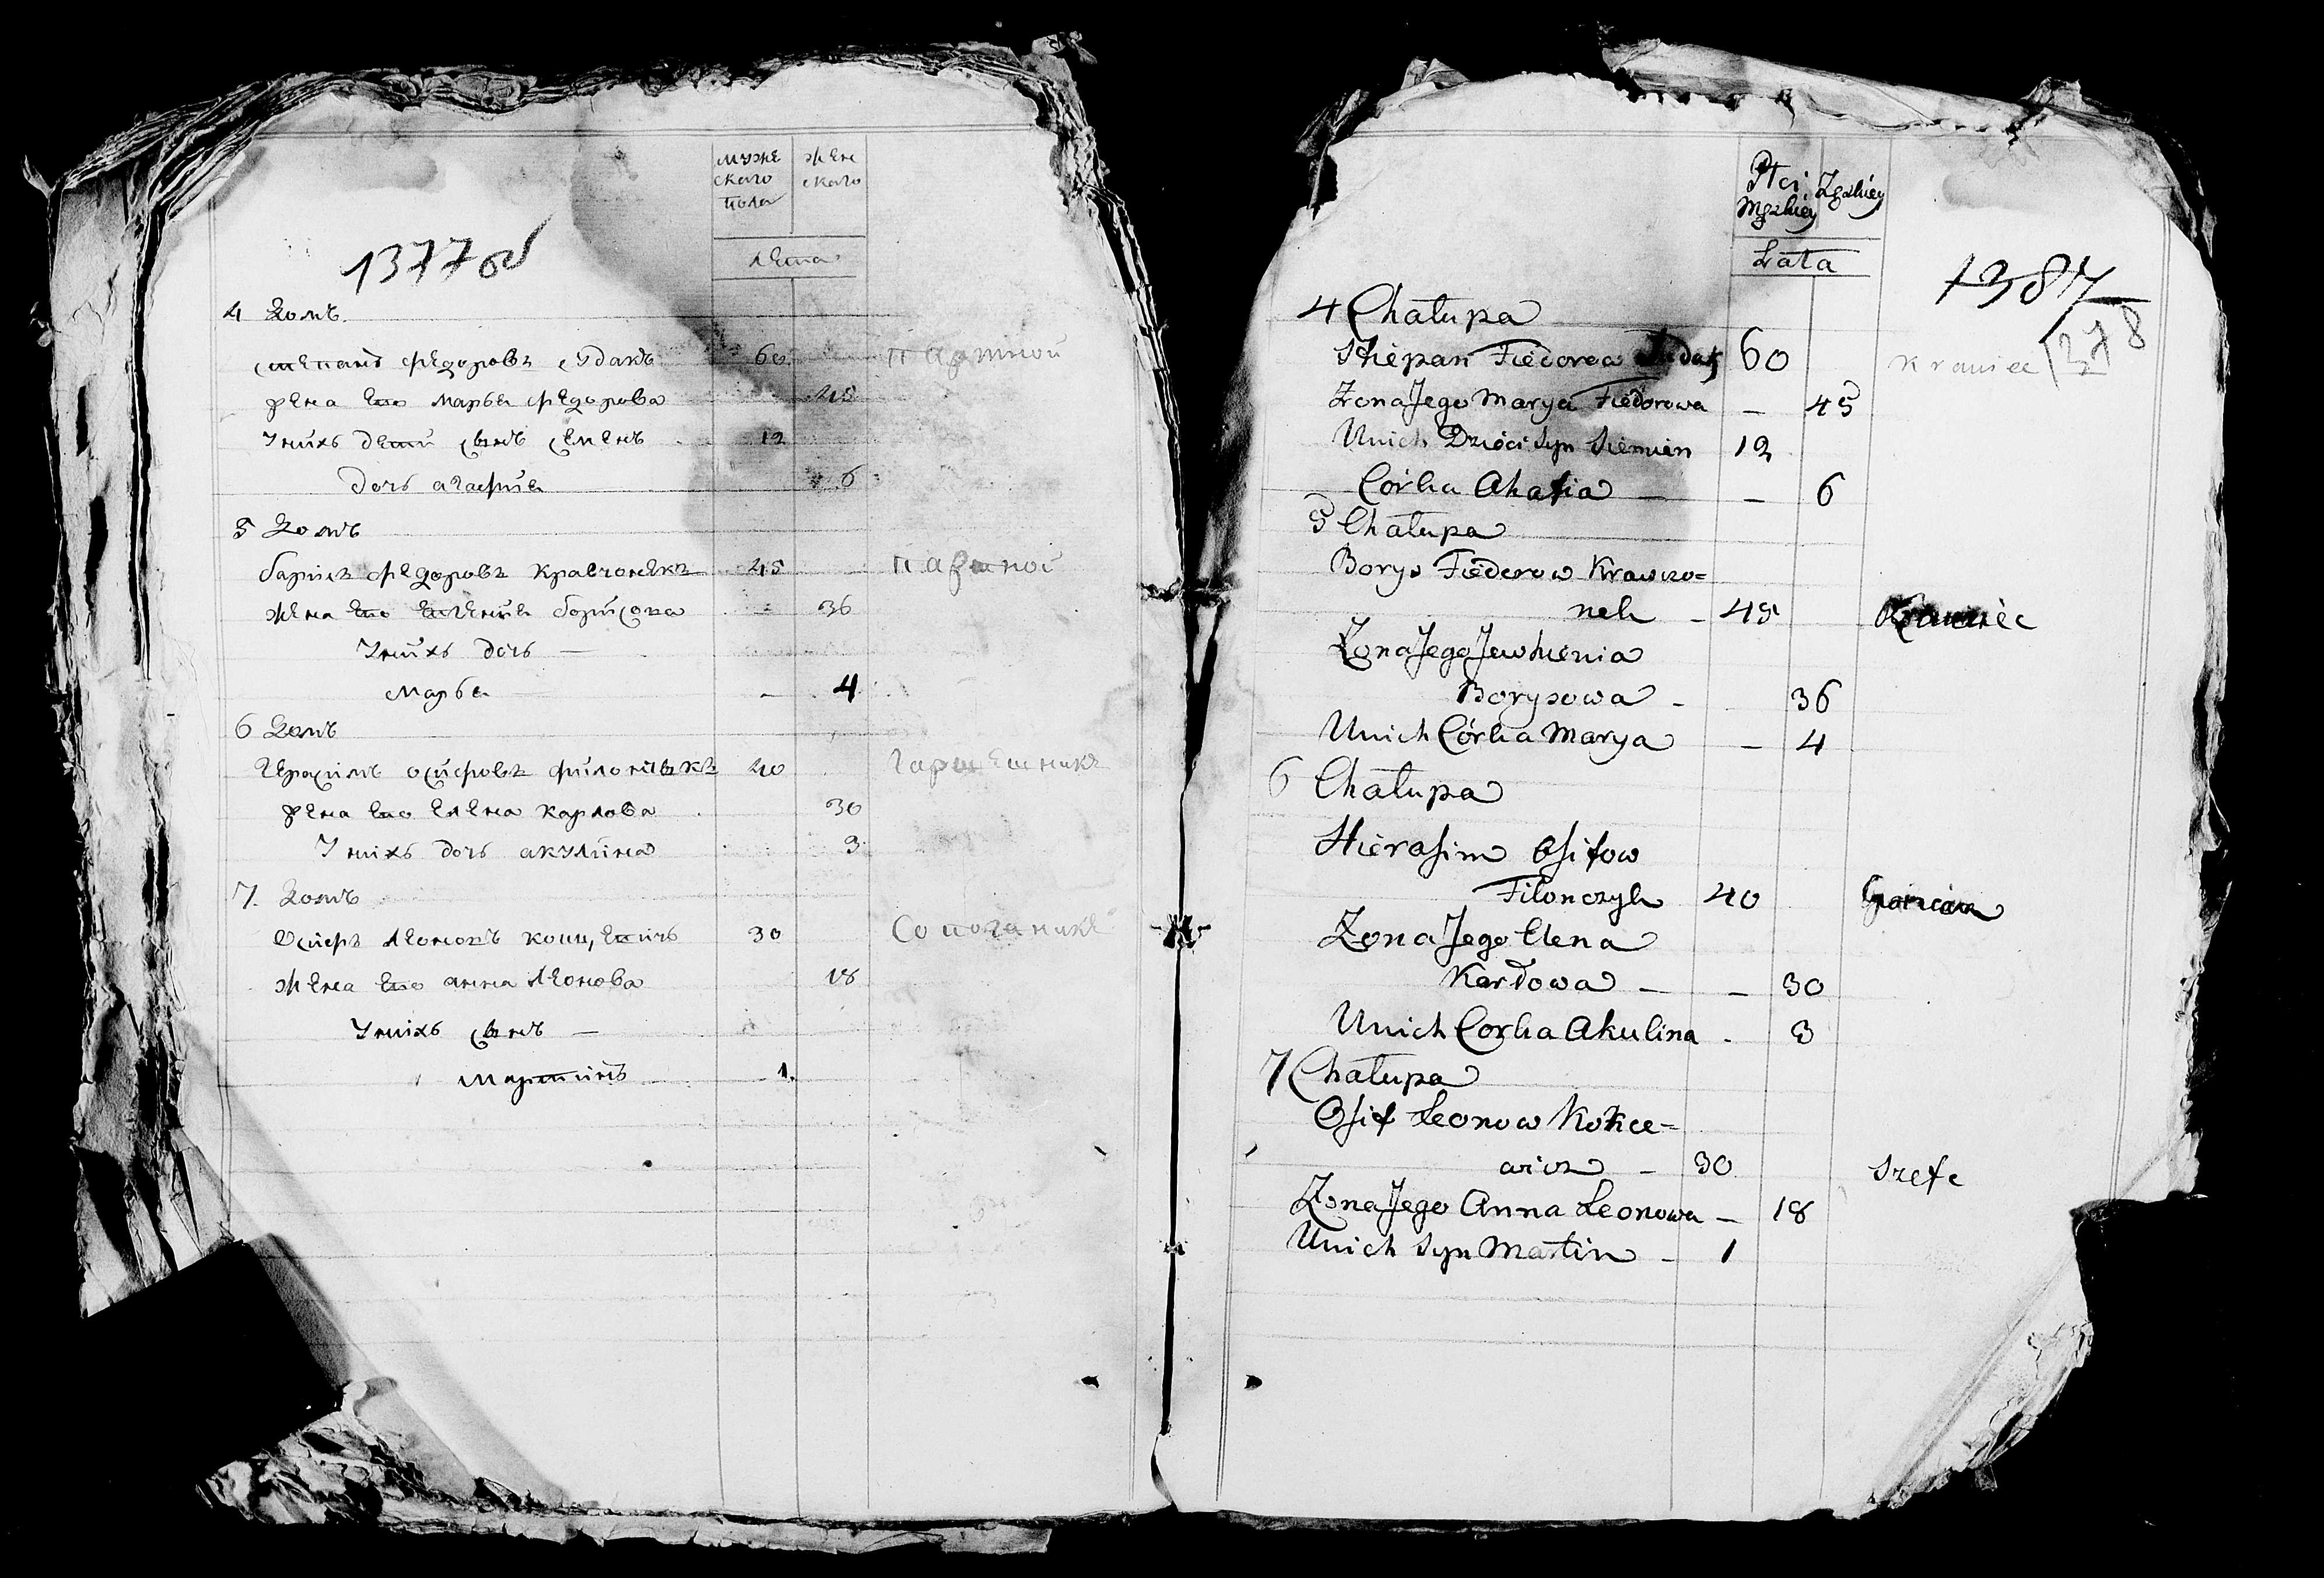 муже
ского
пола
жен
ского
лета
1377 об
4 Домъ
степанъ федоровъ Судакъ 60 партной
жена Его марья федорова 45
Унихъ детй сынъ семенъ 12
дочь агафия 6
5 Домъ
барисъ федоровъ кравчонекъ 45 партной
жена Его Евгения борисова - 36
Унихъ дочь —
марья - 4
6 Домъ
герасимъ осифовъ филончикъ 40 гартешникъ
жена Его Елена карлова 30
Унихъ дочь акулина 3
7. Домъ
Осифъ леоновъ 30
жена Его анна леонова 18
Унихъ сынъ —
мартинъ 1.
Płci
Męzkiey
Zęzkiey
Lata
1387
278
4 Chałupa
Sthiepan Fiedorow 60 krawiec
Zona Jego Marya Fiedorowa — 45
Unich Dzieci Syn Siemien 12
Corka Ahafia — — 6
5 Chałupa
Borys Fiederow Krawczo=
nek - 45 Krawiec
Zona Jego Jewhienia
Borysowa - 36
Unich Córka Marya — 4
6 Chałupa
Hierasim Osifow
Filonczyk 40 Garncarz
Zona Jego Elena
Karłowa — — 30
Unich Corka Akulina . 3
7 Chałupa
Osif Leonow Kokce=
wicz — 30 Szefc
Zona Jego Anna Leonowa — 18
Unich Syn Martin — 1